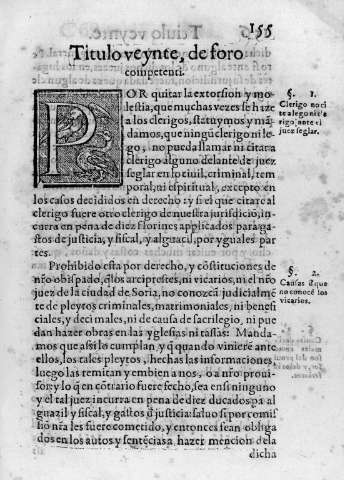 155
Titulo veynte, de foro
competenti.
POR quitar la extorsion y mo
lestia, que muchas vezes se haze
a los clerigos, statuymos y mã
damos, que ningũ clerigo ni le
go, no pueda llamar ni citar a
clerigo alguno delante de juez
seglar en lo ciuil, criminal, tem
poral, ni espiritual, excepto en
los casos decididos en derecho: y si el que citare al
clerigo fuere otro clerigo de nuestra jurisdiciõ, in
curra en pena de diez florines applicados para ga
stos de justicia, y fiscal, y alguacil, por yguales par
tes.
§. 1.
Clerigo no ci
te a lego ni cle
rigo ante el
juez seglar.
Prohibido esta por derecho, y cõstituciones de
nr̃o obispado, q̃ los arciprestes, ni vicarios, ni el nr̃o
juez de la ciudad de Soria, no conozcã judicialmẽ
te de pleytos criminales, matrimoniales, ni benefi
ciales, y decimales, ni de causa de sacrilegio, ni pue
dan hazer obras en las yglesias ni tassas: Manda-
mos que assi lo cumplan, y q̃ quando viniere ante
ellos, los tales pleytos, hechas las informaciones,
luego las remitan y embien a nos, o a nr̃o proui-
sor, y lo q̃ en cõtrario fuere fecho, sea en si ninguno
y el tal juez incurra en pena de diez ducados pa al
guazil y fiscal, y gastos d̃ justicia: saluo si por comis
siõ nr̃a les fuere cometido, y entonces seãn obliga
dos en los autos y sentẽcias a hazer mencion de la
dicha
§. 2.
Causas d̃ que
no conocẽ los
vicarios.